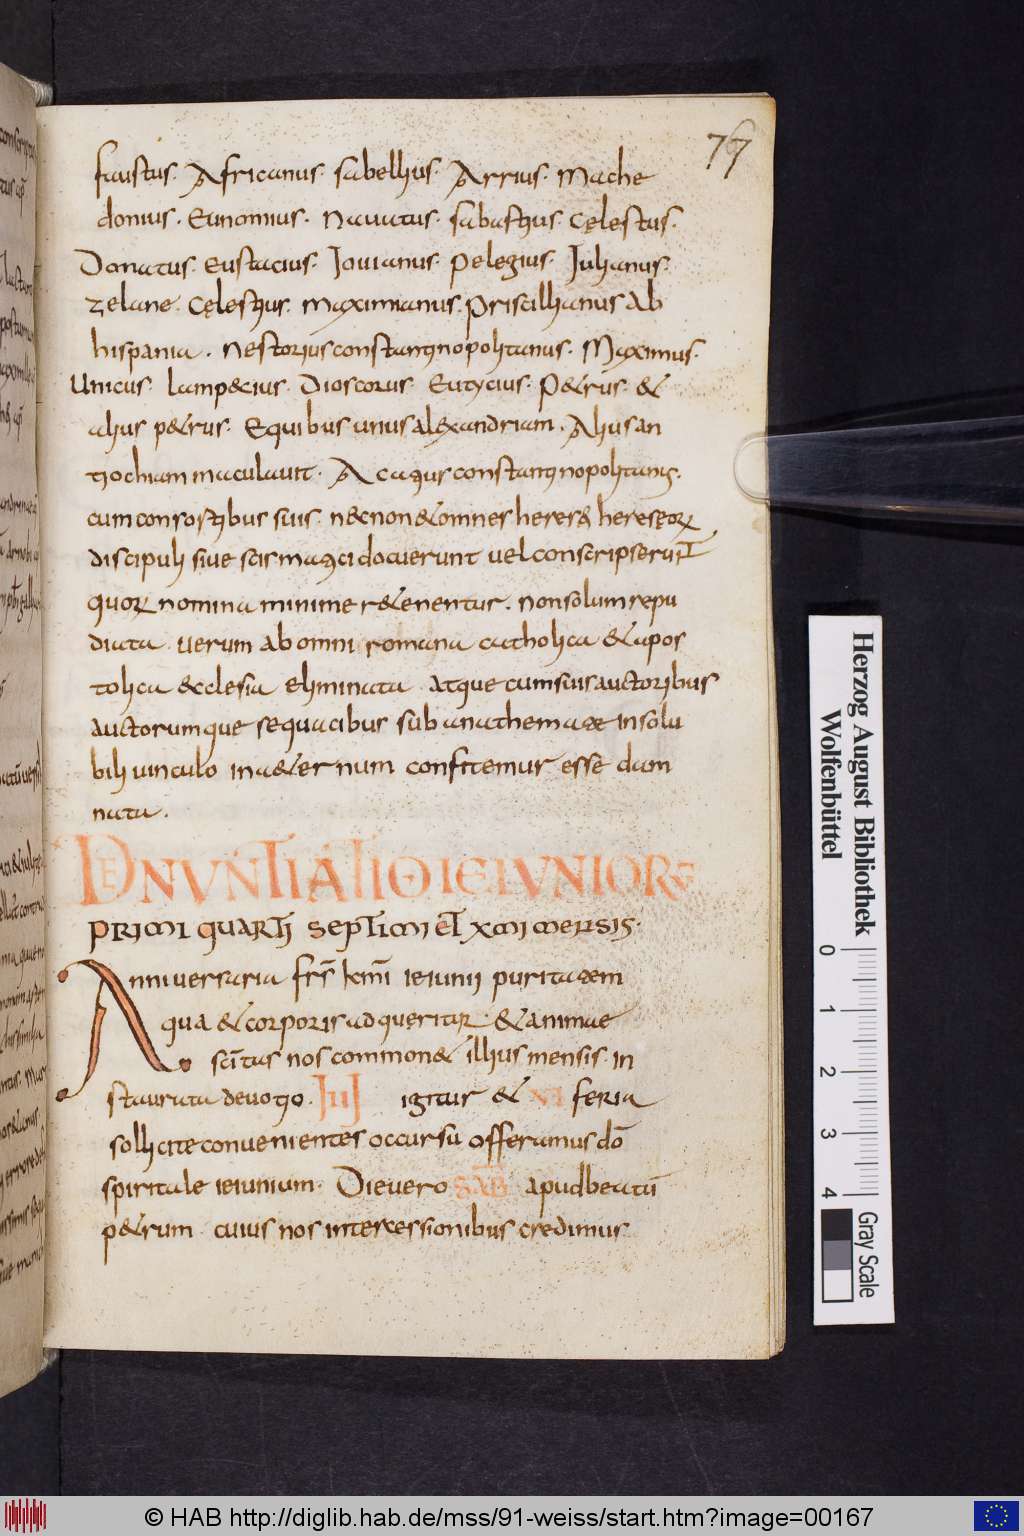 77
faustus· Africanus· sabellius· Arrius· Mache
donius· Eunomius· Nauatus· sabastius· cęlestus·
Donatus· Eustacius· Iouianus· pelegius· Iulianus·
zelane· Cęlestius· Maximianus· Priscillianus ab
hispania· Nestorius constantinopolitanus· Maximus·
Unicus· lampetius· Dioscorus· Eutycius· Petrus· &
alius p&rus· Equibus unus alexandriam· Alius an
tiochiam maculauit· Acatius constantinopolitanis·
cum consortibus suis· n&non & omnes heresis heresęorum
discipuli siue scismatici docuerunt uel conscripserunt
quorum nomina minime r&enentur· non solum repu
diata uerum ab omni romana catholica & apos
tolica &cclesia eliminata· atque cum suis auctoribus
auctorumque sequacibus sub anathematae insolu
bili uinculo in a&ernum confitemur esse dam
nata·
DENUNTIATIO IEIUNIORŪ
PRIMI QUARTI SEPTIMI ET Xmi MENSIS·
Anniuersaria frs kmi ieiunii puritatem
qua & corporis adqueritur· & animae
scitas nos common& illius mensis· in
staurata deuotio· IIII igitur & VI feria
sollicite conuenientes occursu offeramus dō
spiritale ieiunium· Die uero SAB apud beatū
p&rum cuius nos intercessionibus credimus
Herzog August Bibliothek
Wolfenbüttel
0 1 2 3 4
Gray Scale
© HAB http://diglib.hab.de/mss/91-weiss/start.htm?image=00167